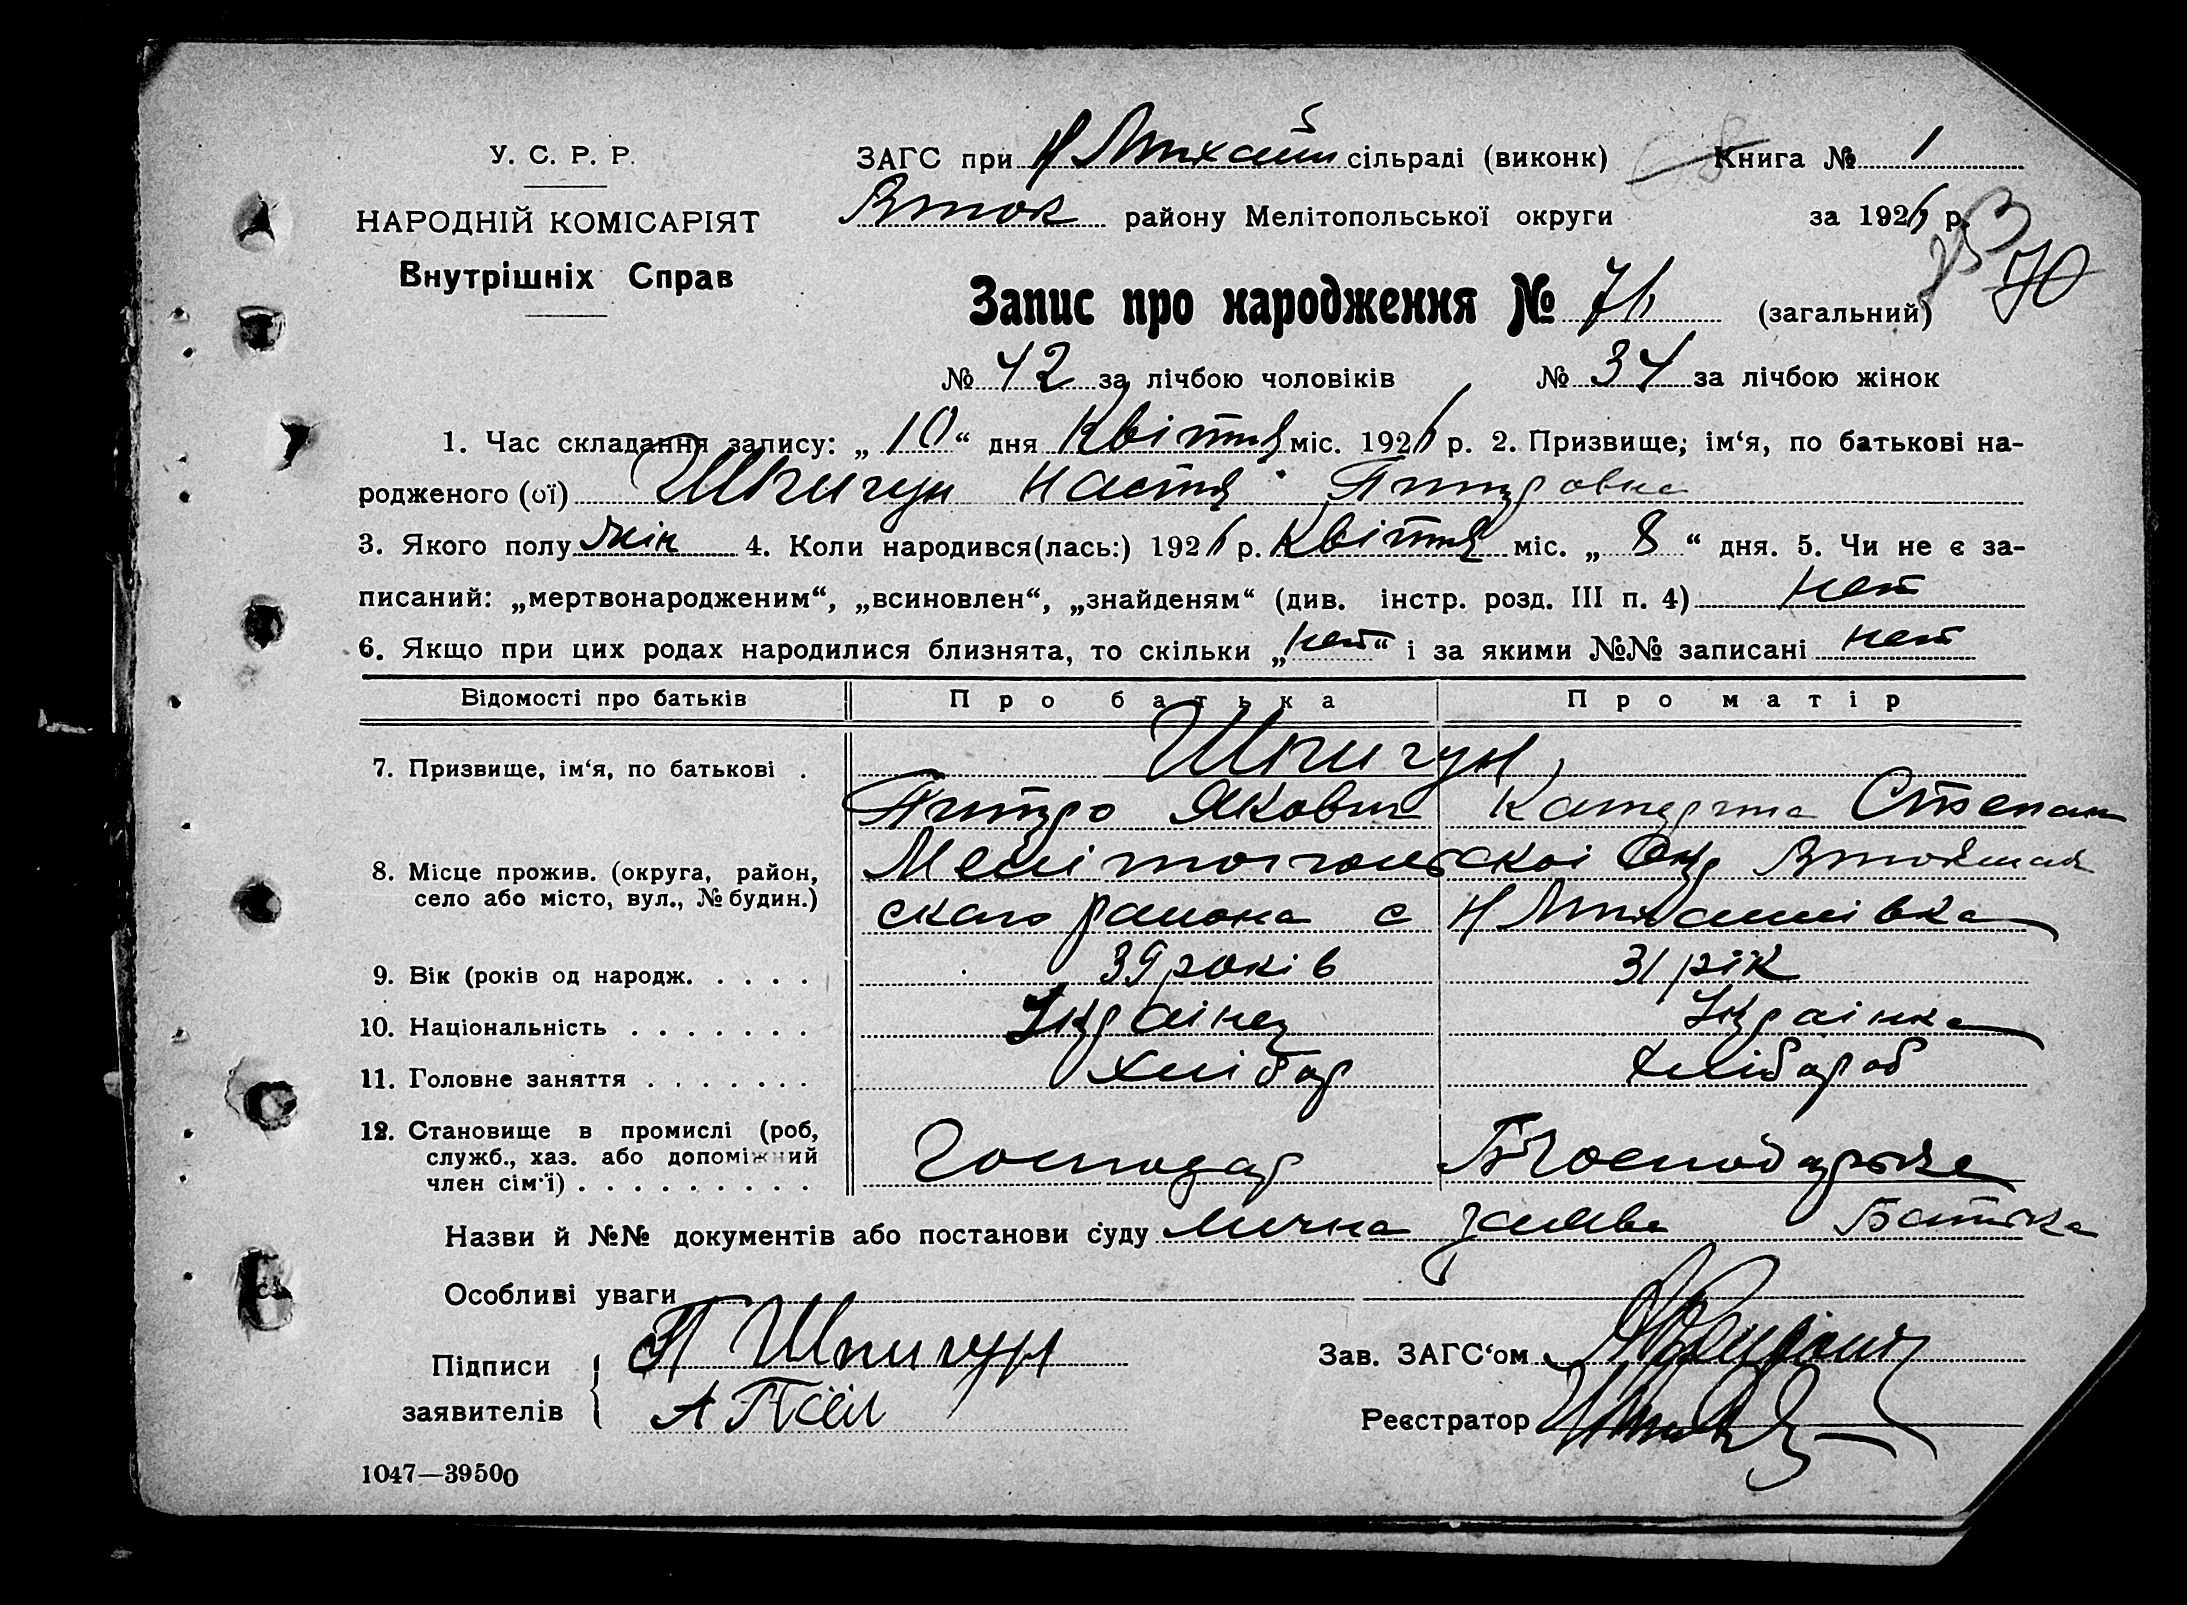 У. С. Р. Р.
НАРОДНІЙ КОМІСАРІЯТ
Внутрішніх Справ
ЗАГС при Н Михайл сільраді (виконк) Книга № 1
району Мелітопольської округи за 1926 р.
70
Запис про народження № 76 (загальний)
№ 42 за лічбою чоловіків № 34 за лічбою жінок
1. Час складання запису: „ 10 “ дня Квітня міс. 1926 р. 2. Призвище, ім‘я, по батькові на-
родженого (ої) Шпигун Настя Питровна
3. Якого полу жін 4. Коли народився(лась:) 1926 р. Квітня міс. „ 8 “ дня. 5. Чи не є за-
писаний: „мертвонародженим“, „всиновлен“, „знайденям“ (див. інстр. розд. III п. 4) нет
6. Якщо при цих родах народилися близнята, то скільки „ нет “ і за якими №№ записані нет
Відомості про батьків Про батька Про матір
7. Призвище, ім‘я, по батькові . Шпигун
Питро Якович Катерина Степан
8. Місце прожив. (округа, район, Мелітопольскоі Окр
село або місто, вул., № будин.) ского района с Н Михайлівка
9. Вік (років од народж. . . . . 39 років 31 рік
10. Національність . . . . . . . Украінец Украінка
11. Головне заняття . . . . . . . Хлібор хлібороб
12. Становище в промислі (роб, Господар Господарька
служб., хаз. або допоміжний
член сім‘ї) . . . . . . . . .
Назви й №№ документів або постанови суду Лична заява Батька
Особливі уваги
Підписи П Шпигун Зав. ЗАГС‘ом
заявителів А Псёл Реєстратор
1047—39500